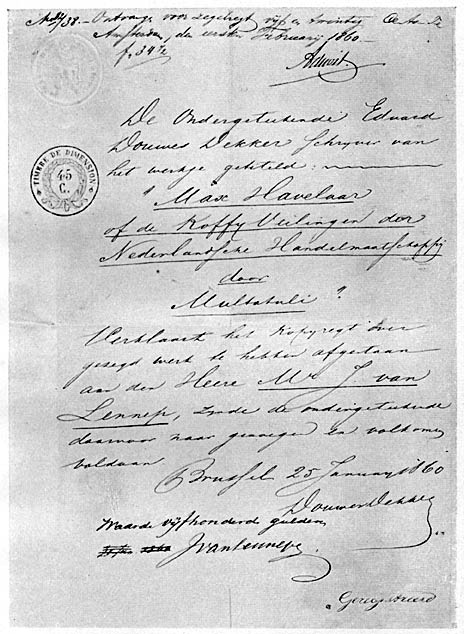 Ontvangen voor zegelregt vijf en twintig
Amsterdam, den eersten Februarij 1860.
De Ondergeteekende Eduard
Douwes Dekker Schrijver van
het werkje getiteld :
"Max Havelaar
of de Koffy Veilingen der
Nederlandsche Handelmaatschappij
door
Multatuli"
TIMBRE DE DIMENSION
45
C.
Verklaart het Kopyregt over
gezegd werk te hebben afgestaan
aan den Heere Mr J. van
Lennep, zynde de ondergeteekende
daarvoor naar genoegen en volkomen
voldaan
Brussel 25 January 1860
Douwes Dekker
Waarde vijfhonderd gulden
JvanLennep
Geregistreerd